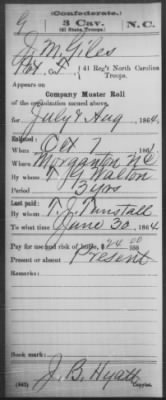 (Confederate.)
G 3 Cav. N.C.
(41 State Troops.)
J. M. Giles
Pvt, Co. , 41 Reg't North Carolina Troops.
Appears on
Company Muster Roll
of the organization named above,
for July & Aug, 1864.
Enlisted:
When Oct 7, 186
Where Morganton NC
By whom T. G. Walton
Period 3 yrs
Last paid:
By whom T. J. Tunstall
To what time June 30, 1864.
Pay for use and risk of horse, $24.00/100
Present or absent Present
Remarks:
Book mark:
J. B. Hyatt
(642) Copyist.